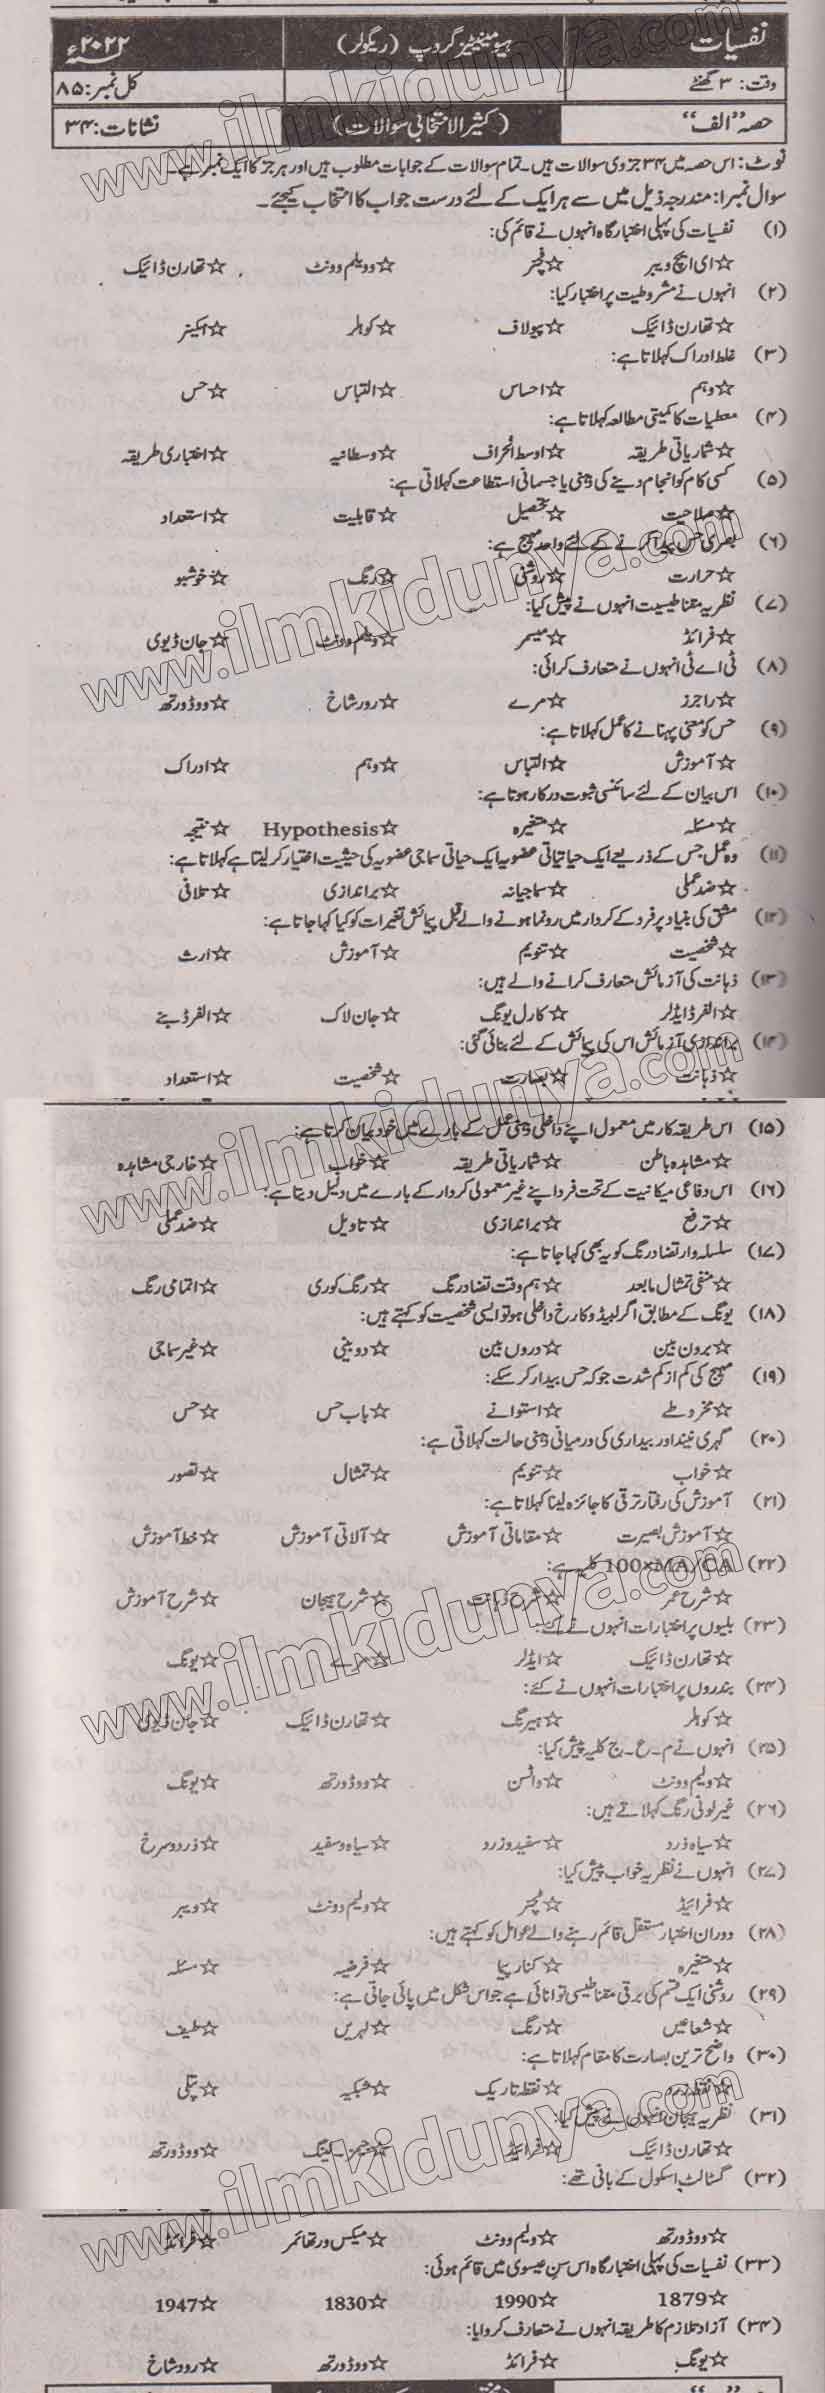 نفسیات
ہیومینیٹیز گروپ (ریگولر)
۲۰۲۲ء
وقت: ۳ گھنٹے
کل نمبر: ۸۵
حصہ "الف"
(کثیر الانتخابی سوالات)
نشانات: ۳۴
نوٹ: اس حصہ میں ۳۴ جزوی سوالات ہیں۔ تمام سوالات کے جوابات مطلوب ہیں اور ہر جز کا ایک نمبر ہے۔
سوال نمبر۱: مندرجہ ذیل میں سے ہر ایک کے لئے درست جواب کا انتخاب کیجئے۔
(۱) نفسیات کی پہلی اختبار گاہ انہوں نے قائم کی:
☆ ای ایچ ویبر ☆ فچنر ☆ وویلم وونٹ ☆ تھارن ڈائیک
(۲) انہوں نے مشروطیت پر اختبار کیا:
☆ تھارن ڈائیک ☆ پیولاف ☆ کوہلر ☆ اسکینر
(۳) غلط ادراک کہلاتا ہے:
☆ وہم ☆ احساس ☆ التباس ☆ حس
(۴) معطیات کا کمیتی مطالعہ کہلاتا ہے:
☆ شماریاتی طریقہ ☆ اوسط انحراف ☆ وسطانیہ ☆ اختباری طریقہ
(۵) کسی کام کو انجام دینے کی ذہنی یا جسمانی استطاعت کہلاتی ہے:
☆ صلاحیت ☆ تحصیل ☆ قابلیت ☆ استعداد
(۶) بصری حس پیدا کرنے کے لئے واحد مہیج ہے:
☆ حرارت ☆ روشنی ☆ رنگ ☆ خوشبو
(۷) نظریہ مقناطیسیت انہوں نے پیش کیا:
☆ فرائڈ ☆ میسمر ☆ ویلم وونٹ ☆ جان ڈیوی
(۸) ٹی اے ٹی انہوں نے متعارف کرائی:
☆ راجرز ☆ مرے ☆ رورشاخ ☆ ووڈورتھ
(۹) حس کو معنی پہنانے کا عمل کہلاتا ہے:
☆ آموزش ☆ التباس ☆ وہم ☆ ادراک
(۱۰) اس بیان کے لئے سائنسی ثبوت درکار ہوتا ہے:
☆ مسئلہ ☆ متغیرہ ☆ Hypothesis ☆ نتیجہ
(۱۱) وہ عمل جس کے ذریعے ایک حیاتیاتی عضویہ ایک حیاتی سماجی عضویہ کی حیثیت اختیار کر لیتا ہے کہلاتا ہے:
☆ ضد عملی ☆ سماجیانہ ☆ براندازی ☆ تلافی
(۱۲) مشق کی بنیاد پر فرد کے کردار میں رونما ہونے والے قبل پیمائش تغیرات کو کیا کہا جاتا ہے:
☆ شخصیت ☆ تنویم ☆ آموزش ☆ ارث
(۱۳) ذہانت کی آزمائش متعارف کرانے والے ہیں:
☆ الفرڈ ایڈلر ☆ کارل یونگ ☆ جان لاک ☆ الفرڈ بینے
(۱۴) براندازی آزمائش اس کی پیمائش کے لئے بنائی گئی:
☆ ذہانت ☆ بصارت ☆ شخصیت ☆ استعداد
(۱۵) اس طریقہ کار میں معمول اپنے داخلی ذہنی عمل کے بارے میں خود بیان کرتا ہے:
☆ مشاہدہ باطن ☆ شماریاتی طریقہ ☆ خواب ☆ خارجی مشاہدہ
(۱۶) اس دفاعی میکانیت کے تحت فرد اپنے غیر معمولی کردار کے بارے میں دلیل دیتا ہے:
☆ ترفع ☆ براندازی ☆ تاویل ☆ ضد عملی
(۱۷) سلسلہ وار تضاد رنگ کو یہ بھی کہا جاتا ہے:
☆ منفی تمثال مابعد ☆ ہم وقت تضاد رنگ ☆ رنگ کوری ☆ اتمامی رنگ
(۱۸) یونگ کے مطابق اگر لبیڈو کا رخ داخلی ہو تو ایسی شخصیت کو کہتے ہیں:
☆ برون بین ☆ دروں بین ☆ دوبینی ☆ غیر سماجی
(۱۹) مہیج کی کم از کم شدت جو کہ حس بیدار کر سکے:
☆ مخروطے ☆ استوانے ☆ باب حس ☆ حس
(۲۰) گہری نیند اور بیداری کی درمیانی ذہنی حالت کہلاتی ہے:
☆ خواب ☆ تنویم ☆ تمثال ☆ تصور
(۲۱) آموزش کی رفتار ترقی کا جائزہ لینا کہلاتا ہے:
☆ آموزش بصیرت ☆ مقاماتی آموزش ☆ آلاتی آموزش ☆ خط آموزش
(۲۲) 100×MA/CA کلیہ ہے:
☆ شرح عمر ☆ شرح ذہانت ☆ شرح ہیجان ☆ شرح آموزش
(۲۳) بلیوں پر اختبارات انہوں نے کئے:
☆ تھارن ڈائیک ☆ ایڈلر ☆ مرے ☆ یونگ
(۲۴) بندروں پر اختبارات انہوں نے کئے:
☆ کوہلر ☆ ہیرنگ ☆ تھارن ڈائیک ☆ جان ڈیوی
(۲۵) انہوں نے م۔ع۔ج کلیہ پیش کیا:
☆ ولیم وونٹ ☆ واٹسن ☆ ووڈورتھ ☆ یونگ
(۲۶) غیر لونی رنگ کہلاتے ہیں:
☆ سیاہ زرد ☆ سفید و زرد ☆ سیاہ و سفید ☆ زرد و سرخ
(۲۷) انہوں نے نظریہ خواب پیش کیا:
☆ فرائیڈ ☆ ٹچنر ☆ ولیم وونٹ ☆ ویبر
(۲۸) دوران اختبار مستقل قائم رہنے والے عوامل کو کہتے ہیں:
☆ متغیرہ ☆ کنارپیا ☆ فرضیہ ☆ مسئلہ
(۲۹) روشنی ایک قسم کی برقی مقناطیسی توانائی ہے جو اس شکل میں پائی جاتی ہے:
☆ شعاعیں ☆ رنگ ☆ لہریں ☆ طیف
(۳۰) واضح ترین بصارت کا مقام کہلاتا ہے:
☆ نقطہ زرد ☆ نقطہ تاریک ☆ شبکیہ ☆ پتلی
(۳۱) نظریہ ہیجان انہوں نے پیش کیا:
☆ تھارن ڈائیک ☆ فرائیڈ ☆ جیمز۔لینگ ☆ ووڈورتھ
(۳۲) گسٹالٹ اسکول کے بانی تھے:
☆ ووڈورتھ ☆ ولیم وونٹ ☆ میکس ورتھائمر ☆ فرائڈ
(۳۳) نفسیات کی پہلی اختبار گاہ اس سن عیسوی میں قائم ہوئی:
☆ 1879 ☆ 1990 ☆ 1830 ☆ 1947
(۳۴) آزاد تلازم کا طریقہ انہوں نے متعارف کروایا:
☆ یونگ ☆ فرائڈ ☆ ووڈورتھ ☆ رورشاخ
www.ilmkidunya.com
www.ilmkidunya.com
www.ilmkidunya.com
www.ilmkidunya.com